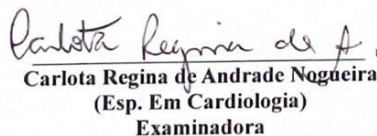 Carlota Regina de A.
Carlota Regina de Andrade Nogueira
(Esp. Em Cardiologia)
Examinadora